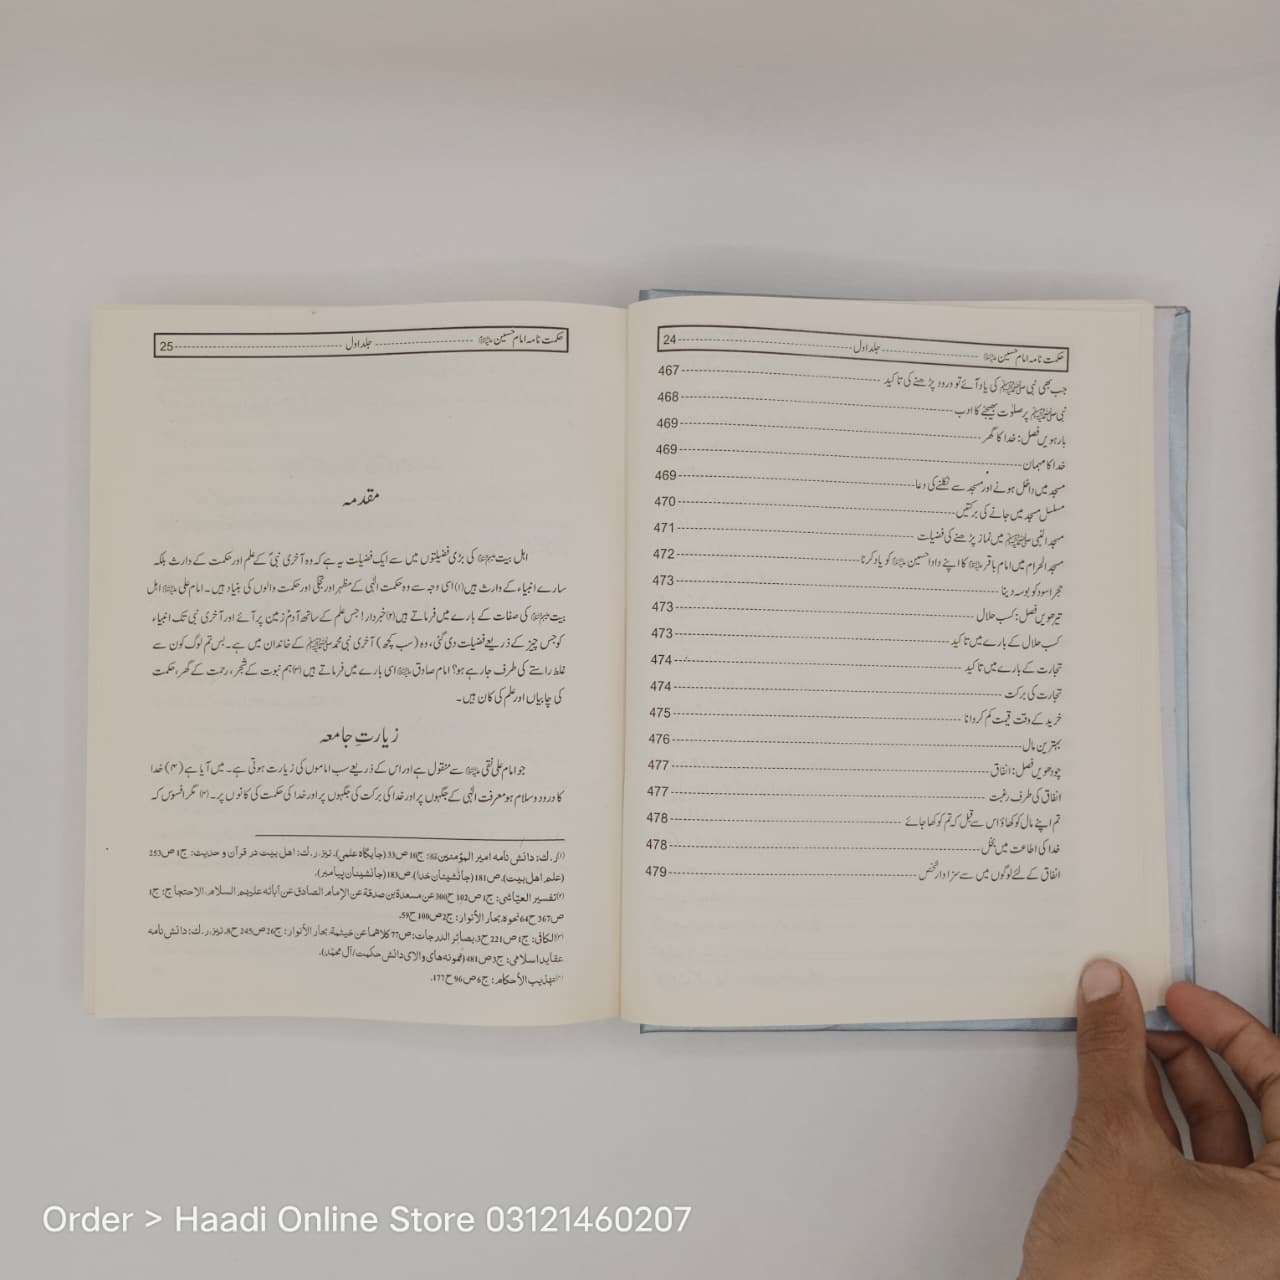 حکمت نامہ امام حسین علیہ السلام ---------- جلد اول ---------- 24
جب بھی نبی ﷺ کی یاد آئے تو درود پڑھنے کی تاکید ---------- 467
نبی ﷺ پر صلوٰت بھیجنے کا ادب ---------- 468
بارہویں فصل: خدا کا گھر ---------- 469
خدا کا مہمان ---------- 469
مسجد میں داخل ہونے اور مسجد سے نکلنے کی دعا ---------- 469
مسلسل مسجد میں جانے کی برکتیں ---------- 470
مسجد النبی ﷺ میں نماز پڑھنے کی فضیلت ---------- 471
مسجد الحرام میں امام باقر علیہ السلام کا اپنے دادا حسین علیہ السلام کو یاد کرنا ---------- 472
حجر اسود کو بوسہ دینا ---------- 473
تیرھویں فصل: کسب حلال ---------- 473
کسب حلال کے بارے میں تاکید ---------- 473
تجارت کے بارے میں تاکید ---------- 474
تجارت کی برکت ---------- 474
خرید کے وقت قیمت کم کروانا ---------- 475
بہترین مال ---------- 476
چودھویں فصل: انفاق ---------- 477
انفاق کی طرف رغبت ---------- 477
تم اپنے مال کو کھاؤ اس سے قبل کہ تم کو کھا جائے ---------- 478
خدا کی اطاعت میں بخل ---------- 478
انفاق کے لئے لوگوں میں سے سزاوار شخص ---------- 479
حکمت نامہ امام حسین علیہ السلام ---------- جلد اول ---------- 25
مقدمہ
اہل بیت علیہم السلام کی بڑی فضیلتوں میں سے ایک فضیلت یہ ہے کہ وہ آخری نبیؐ کے علم اور حکمت کے وارث بلکہ
سارے انبیاء کے وارث ہیں(۱) اسی وجہ سے وہ حکمت الٰہی کے مظہر اور تجلی اور حکمت والوں کی بنیاد ہیں۔ امام علی علیہ السلام اہل
بیت علیہم السلام کی صفات کے بارے میں فرماتے ہیں(۲) خبردار! جس علم کے ساتھ آدمؑ زمین پر آئے اور آخری نبی تک انبیاء
کو جس چیز کے ذریعے فضیلت دی گئی، وہ (سب کچھ) آخری نبی محمد ﷺ کے خاندان میں ہے۔ بس تم لوگ کون سے
غلط راستے کی طرف جارہے ہو؟ امام صادق علیہ السلام اسی بارے میں فرماتے ہیں(۳) ہم نبوت کے شجر، رحمت کے گھر، حکمت
کی چابیاں اور علم کی کان ہیں۔
زیارتِ جامعہ
جو امام علی نقی علیہ السلام سے منقول ہے اور اس کے ذریعے سب اماموں کی زیارت ہوتی ہے۔ میں آیا ہے (۴) خدا
کا درود و سلام ہو معرفت الٰہی کے جگہوں پر اور خدا کی برکت کی جگہوں پر اور خدا کی حکمت کی کانوں پر۔(۴) مگر افسوس کہ
(۱) ر.ک: دانش نامه امیر المؤمنین: ج10 ص33 (جایگاه علمی). نیز، ر.ک: اهل بیت در قرآن و حدیث: ج1 ص253
(علم اهل بیت)، ص181 (جانشینان خدا)، ص183 (جانشینان پیامبر).
(۲) تفسیر العیّاشی: ج1 ص102 ح300 عن مسعدة بن صدقة عن الإمام الصادق عن آبائه علیهم السلام. الاحتجاج: ج1
ص367 ح64 نحوه، بحار الأنوار: ج2 ص100 ح59.
(۳) الکافی: ج1 ص221 ح3، بصائر الدرجات: ص77 کلاهما عن خیثمة، بحار الأنوار: ج26 ص245 ح8، نیز، ر.ک: دانش نامه
عقاید اسلامی: ج3 ص481 (نمونه های والای دانش حکمت / آل محمّد).
تهذیب الأحکام: ج6 ص96 ح177.
Order > Haadi Online Store 03121460207